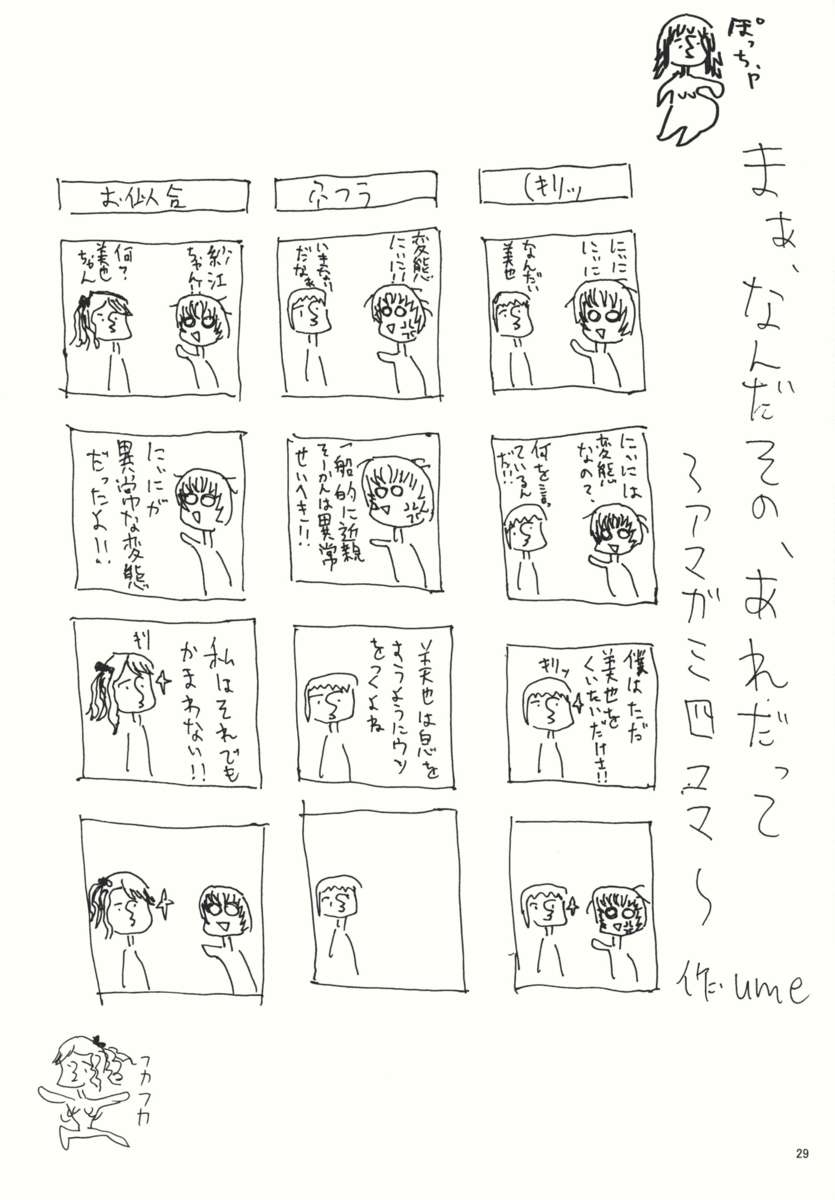 ぽっちゃ
まぁ、なんだその、あれだって
～アマガミ四コマ～
作：ume
(キリッ
にぃに
にぃに
なんだい
美也
にぃには
変態
なの？
何を言っ
ているんだ!!
僕はただ
美也を
くいたいだけさ!!
キリッ
ふつう
変態
にぃに!!
いきなり
だなぁ
一般的に近親
そーかんは異常
せいへき!!
美也は息を
すうようにウソ
をつくよね
お似合
紗江
ちゃん!!
何？
美也
ちゃん
にぃにが
異常な変態
だったよ!!
私はそれでも
かまわない!!
キリ
フカフカ
29